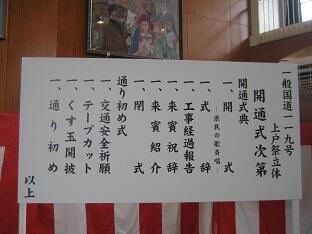 一般国道一一九号
上戸祭立体
開通式次第
開通式典
一、開式
-県民の歌斉唱-
一、式辞
一、工事経過報告
一、来賓祝辞
一、来賓紹介
一、閉式
通り初め式
一、交通安全祈願
一、テープカット
一、くす玉開披
一、通り初め
以上